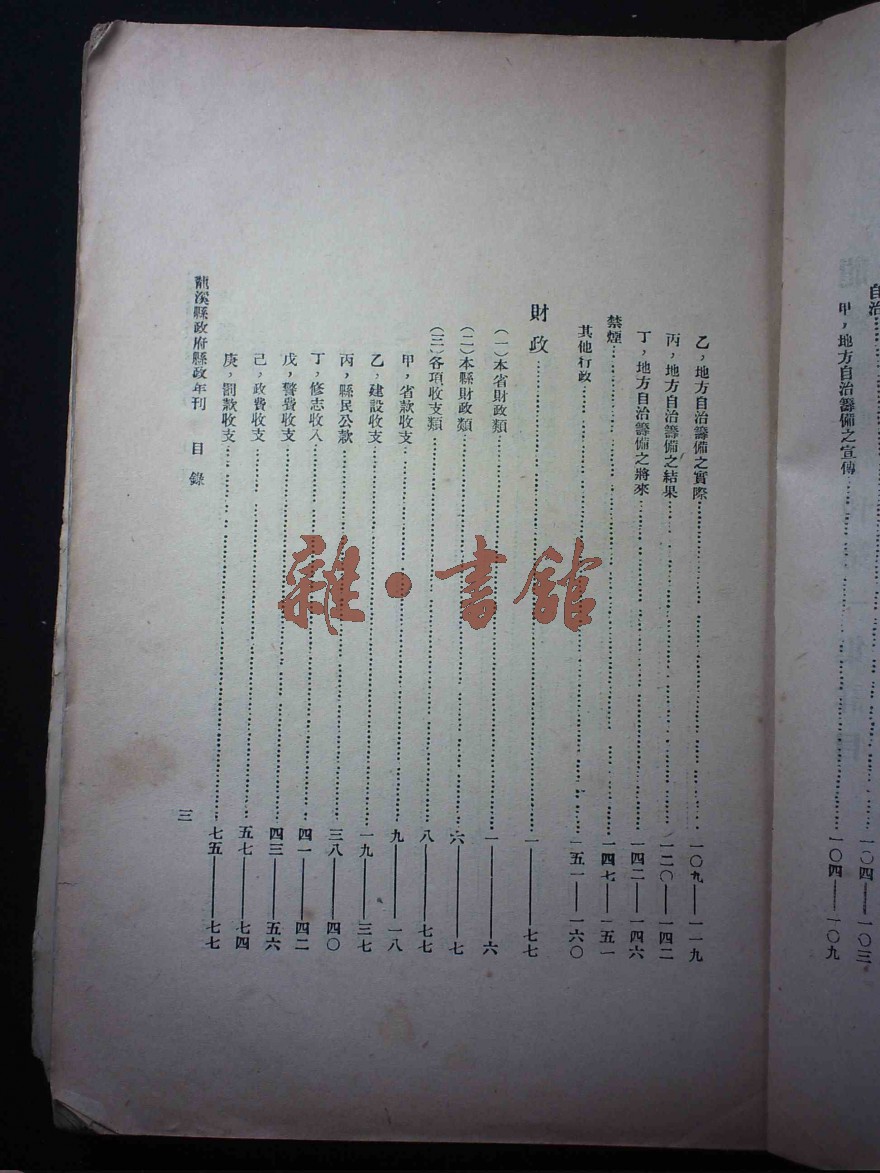 自治……一〇四——一〇三
甲，地方自治籌備之宣傳……一〇四——一〇九
乙，地方自治籌備之實際……一〇九——一一九
丙，地方自治籌備之結果……一二〇——一四二
丁，地方自治籌備之將來……一四二——一四六
禁煙……一四七——一五一
其他行政……一五一——一六〇
財政……一——七七
(一)本省財政類……一——六
(二)本縣財政類……六——七
(三)各項收支類……八——七七
甲，省款收支……九——一八
乙，建設收支……一九——三七
丙，縣民公款……三八——四〇
丁，修志收入……四一——四二
戊，警費收支……四三——五六
己，政費收支……五七——七四
庚，罰款收支……七五——七七
龍溪縣政府縣政年刊 目錄 三
雜·書館